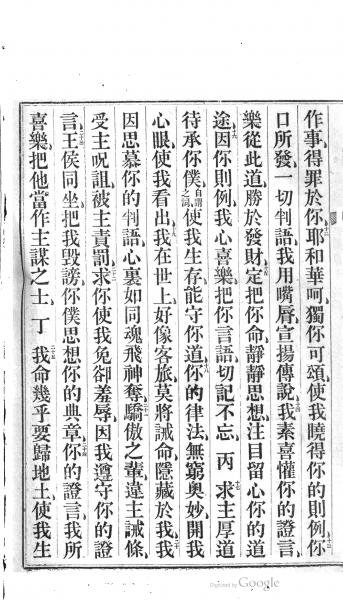 作事得罪於你十二耶和華呵獨你可頌使我曉得你的則例你十三
口所發一切判語我用嘴脣宣揚傳說十四我素喜懽你的證言
樂從此道勝於發財十五定把你命靜靜思想注目留心你的道
途十六因你則例我心喜樂把你言語切記不忘 丙 十七求主厚道
待承你僕自謂之詞使我生存能守你道十八你的律法無窮奧妙開我
心眼使我看出十九我在世上好像客旅莫將誡命隱藏於我二十我
因思慕你的判語心裏如同魂飛神奪二十一驕傲之輩違主誡條
受主呪詛被主責罰二十二求你使我免卻羞辱因我遵守你的證
言二十三王侯同坐把我毀謗你僕思想你的典章二十四你的證言我所
喜樂把他當作主謀之士 丁 二十五我命幾乎要歸地土使我生
Digitized by Google